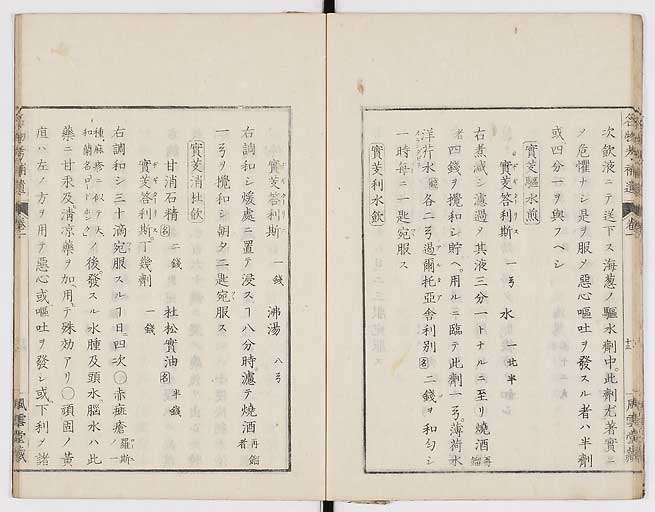 次飲液ニテ送下ス海葱ノ驅水劑中此劑尤著實ニ
ノ危懼ナシ是ヲ服ノ惡心嘔吐ヲ發スル者ハ半劑
或四分一ヲ與フベシ
實芰驅水煎
實芰答利斯 一弓 水 一比半如シ
右煮减シ濾過ヲ其液三分一トナルニ至リ燒酒再餾
者四錢ヲ攪和シ貯ヘ用ルニ臨テ此劑一弓薄荷水
洋芹水各二弓過爾托亞舎利別名二錢ヲ和勻シ
一時每ニ一匙宛服ス
實芰利水飲
實芰答利斯 一錢 沸湯 八弓
右調和シ煖處ニ置テ浸スヿ八分時濾テ燒酒再餾者
一弓ヲ攪和シ朝夕二匙宛服ス
實芰消杜飲
甘消石精名 二錢 杜松實油名 半錢
實芰答利斯丁幾劑 一錢
右調和シ三十滴宛服スルヿ日四次〇赤痘瘡羅斯一
種麻疹ニ似テ大イ
和蘭名
後發スル水腫及頭水腦水ハ此
藥ニ甘汞及淸凉藥ヲ加用テ殊効アリ〇頑固ノ黄
疸ハ左ノ方ヲ用テ惡心或嘔吐ヲ發シ或下利ノ諸
名物考補遺
卷一
風雲堂藏